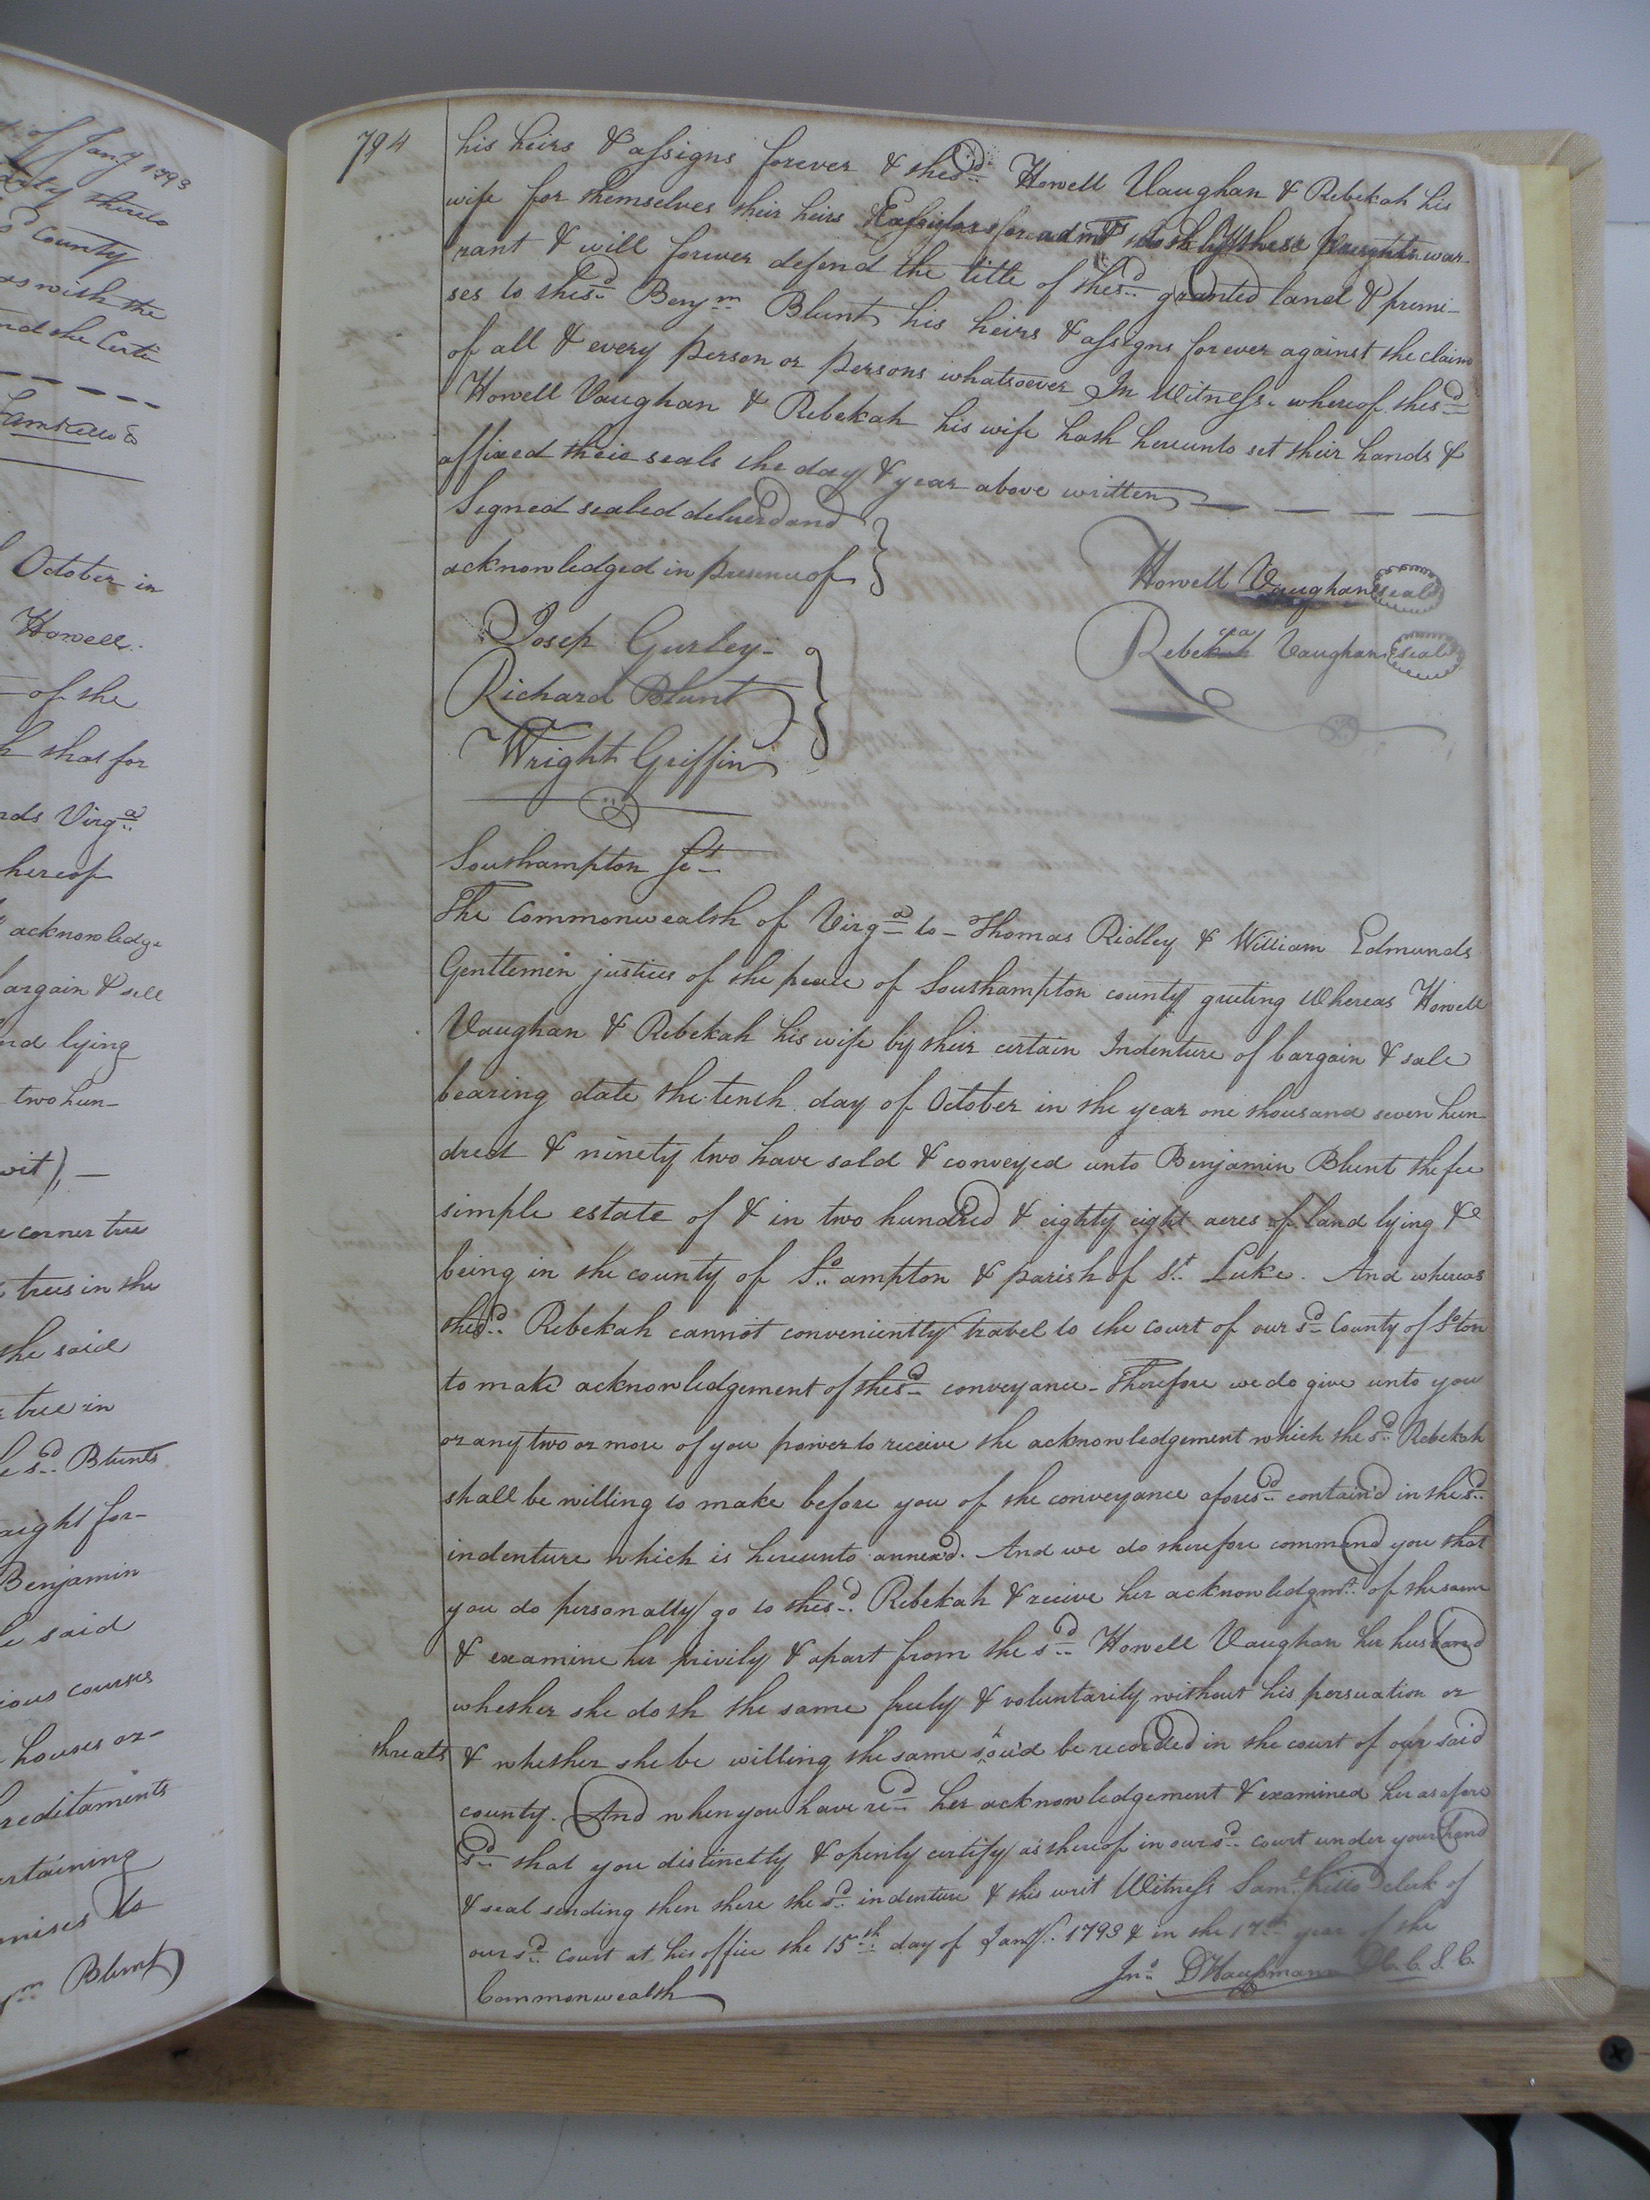 of Jany 1793
duly thereto
sd county
as with the
and the Certi
October in
Howell
of the
that for
Virga
hereof
acknowledge
bargain & sell
and lying
two hun-
wit), —
corner tree
trees in the
the said
tree in
sd Blunts
for-
Benjamin
said
courses
houses or-
hereditaments
to
Blunt)
794
his heirs & assigns forever & the sd Howell Vaughan & Rebekah his
wife for themselves their heirs admrs doth by these war-
rant & will forever defend the title of the sd granted land & premi-
ses to the sd Benjm Blunt his heirs & assigns forever against the claim
of all & every person or persons whatsoever In Witness whereof the sd
Howell Vaughan & Rebekah his wife hath hereunto set their hands &
affixed their seals the day & year above written
Signed sealed deliverd and
acknowledged in presence of
Howell Vaughan seal
Rebekah cca Vaughan seal
Josep Gurley
Richard Blunt
Wright Griffin
Southampton Sct
The Commonwealth of Virga to - Thomas Ridley & William Edmunds
Gentlemen justices of the peace of Southampton county greeting Whereas Howell
Vaughan & Rebekah his wife by their certain Indenture of bargain & sale
bearing date the tenth day of October in the year one thousand seven hun-
dred & ninety two have sold & conveyed unto Benjamin Blunt the fee
simple estate of & in two hundred & eighty eight acres of land lying &
being in the county of So.ampton & parish of St. Luke. And whereas
the sd. Rebekah cannot conveniently travel to the court of our sd County of Soton
to make acknowledgement of the sd conveyance - Therefore we do give unto you
or any two or more of you power to receive the acknowledgement which the sd. Rebekah
shall be willing to make before you of the conveyance aforesd contain'd in the sd.
indenture which is hereunto annex'd. And we do therefore command you that
you do personally go to the sd. Rebekah & receive her acknowledgmt. of the same
& examine her privily & apart from the sd Howell Vaughan her husband
whether she doth the same freely & voluntarily without his persuation or
threats & whether she be willing the same shou'd be recorded in the court of our said
county. And when you have recd her acknowledgement & examined her as afore
sd that you distinctly & openly certify us thereof in our sd. court under your hand
& seal sending then there the sd. indenture & this writ Witness Saml. Kello clerk of
our sd. court at his office the 15th day of Jany. 1793 & in the 17th year of the
Commonwealth
Jno. D Haussmann D.C.S.C.